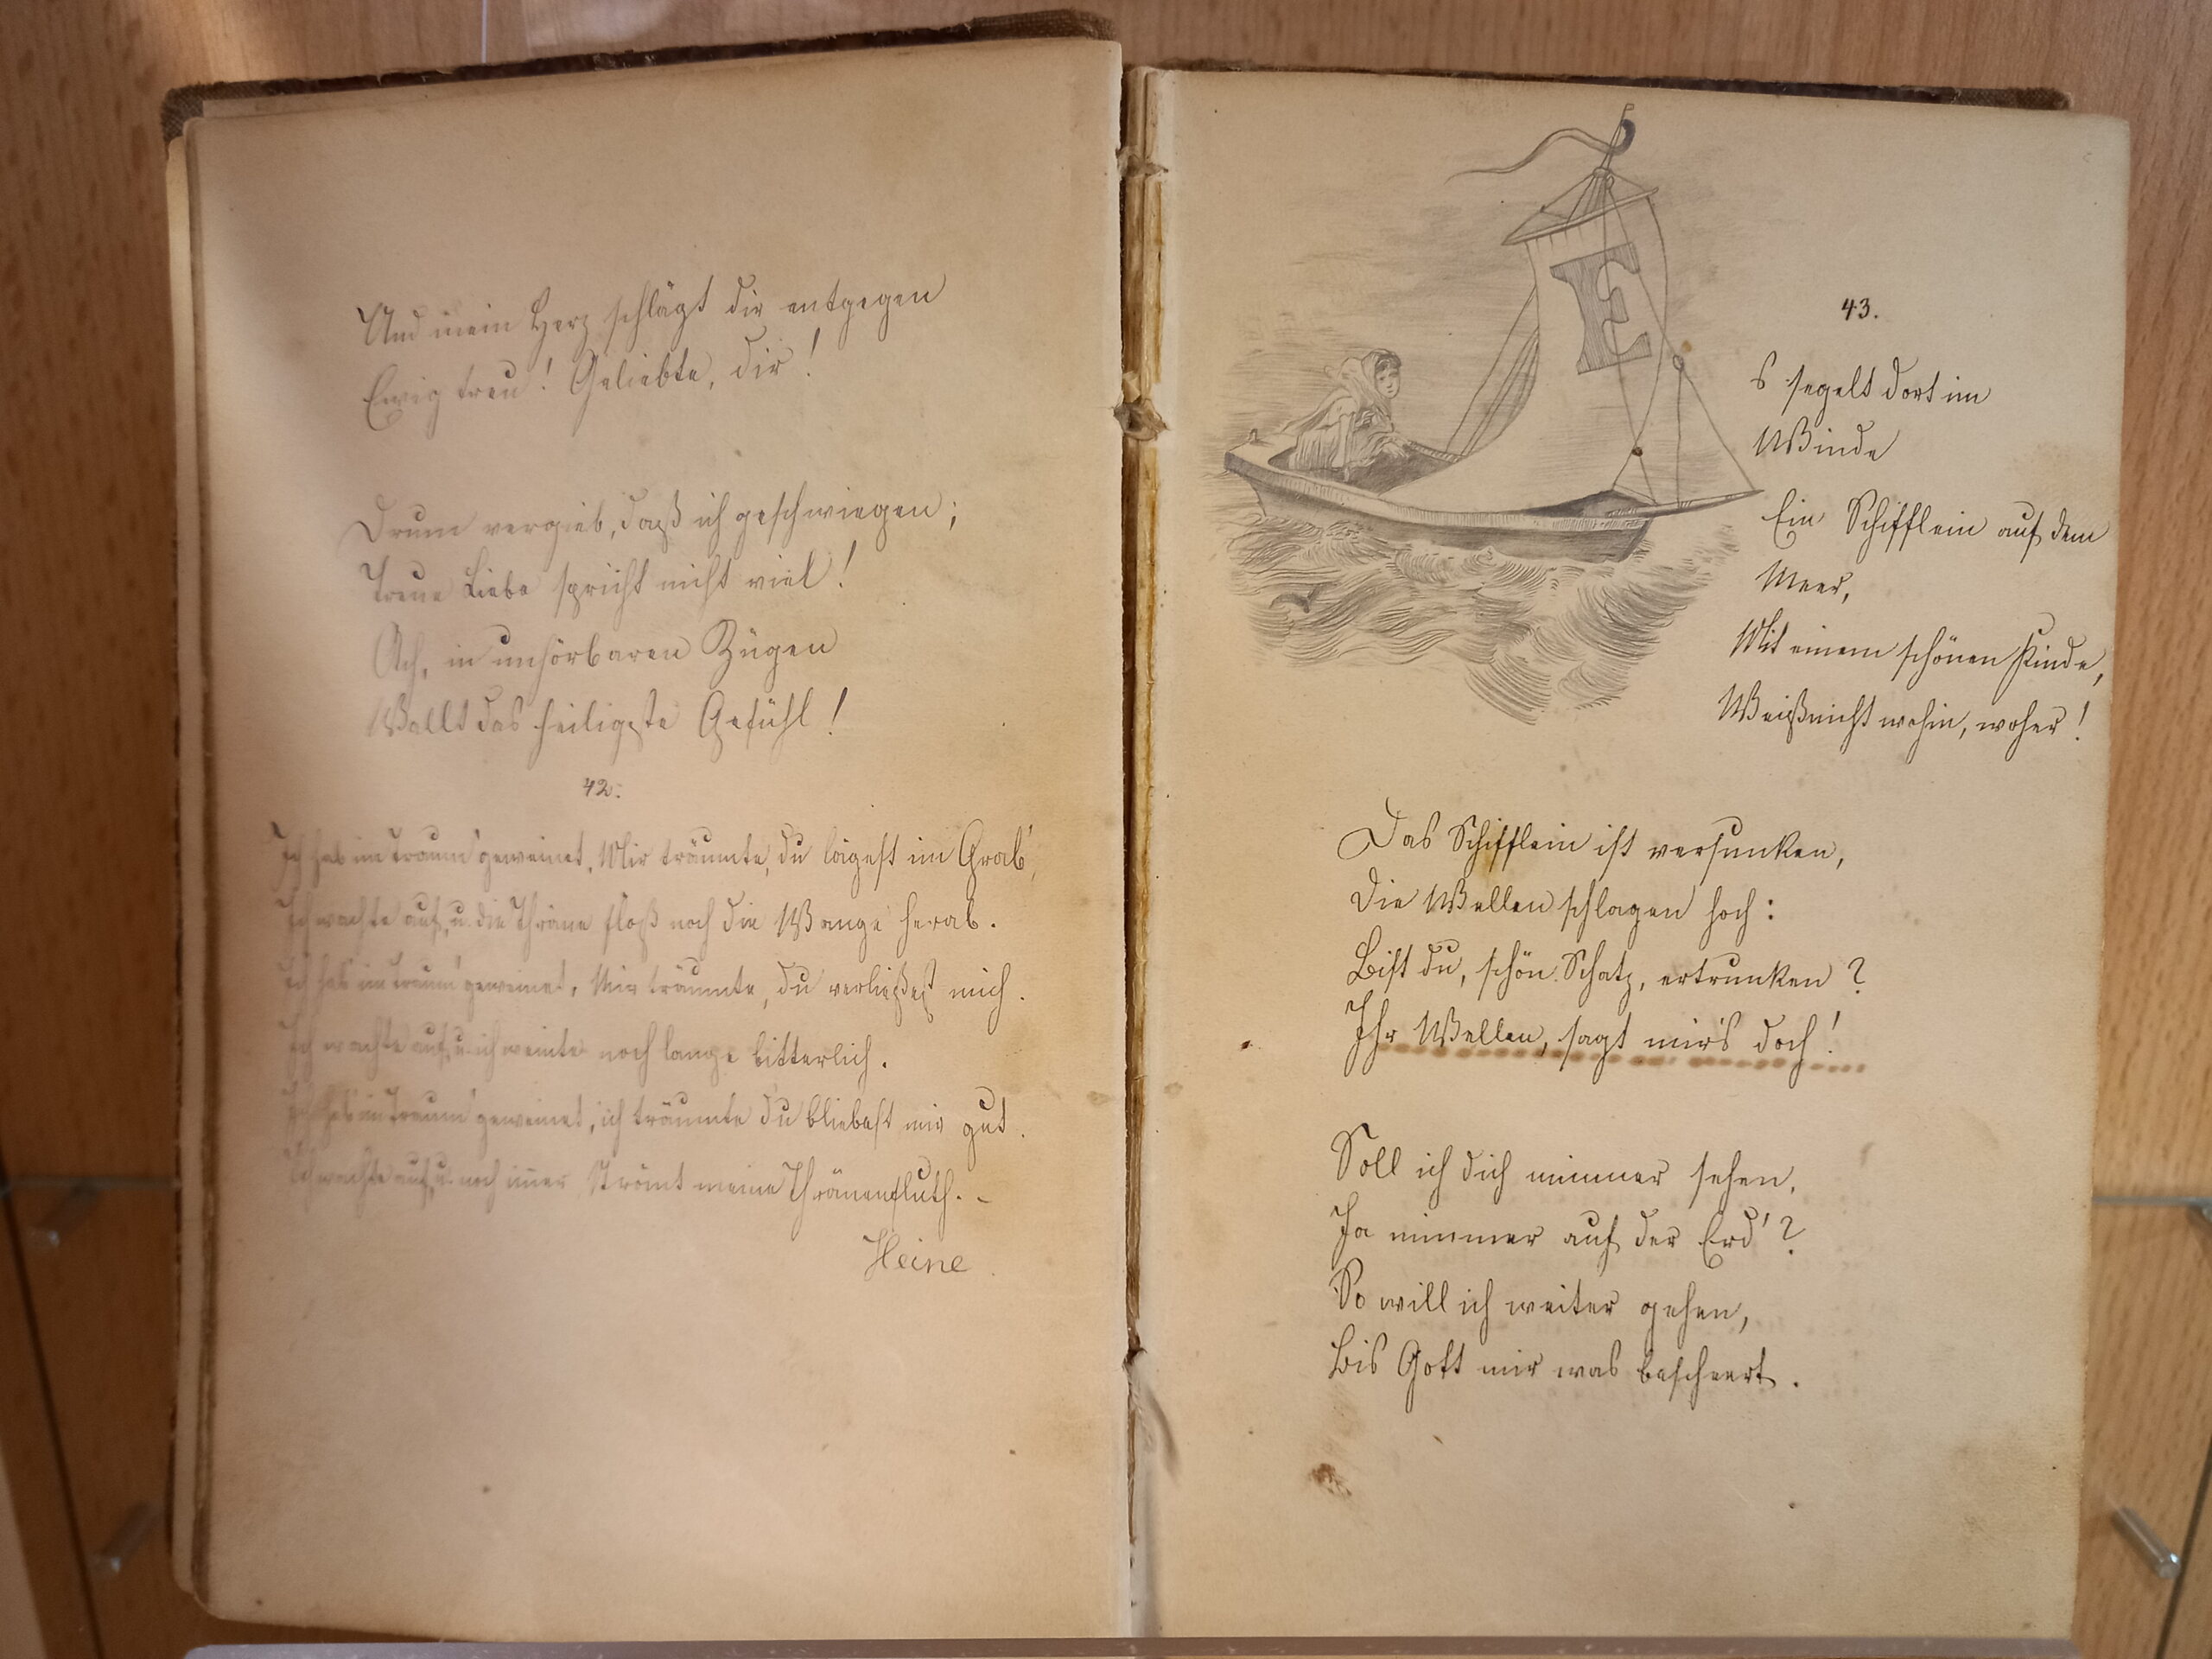 Und mein Herz schlägt dir entgegen
Ewig treu! Geliebte, dir!
Drum vergieb, daß ich geschwiegen;
Treue Liebe spricht nicht viel!
Ach, in unhörbaren Zügen
Wallt das heiligste Gefühl!
42.
Ich hab im Traum' geweinet, Mir träumte, du lägest im Grab',
Ich wachte auf, u. die Thräne floß noch die Wange herab.
Ich hab' im Traum' geweinet, Mir träumte, du verließest mich.
Ich wachte auf, u. ich weinte noch lange bitterlich.
Ich hab' im Traum' geweinet, ich träumte du bliebest mir gut.
Ich wachte auf, u. noch im̅er Strömt meine Thränenfluth. –
Heine
E
43.
s segelt dort im
Winde
Ein Schifflein auf dem
Meer,
Mit einem schönen Kinde,
Weiß nicht wohin, woher!
Das Schifflein ist versunken,
Die Wellen schlagen hoch:
Bist du, schön Schatz, ertrunken?
Ihr Wellen, sagt mir's doch!
Soll ich dich nimmer sehen,
Ja nimmer auf der Erd'?
So will ich weiter gehen,
Bis Gott mir was bescheert.